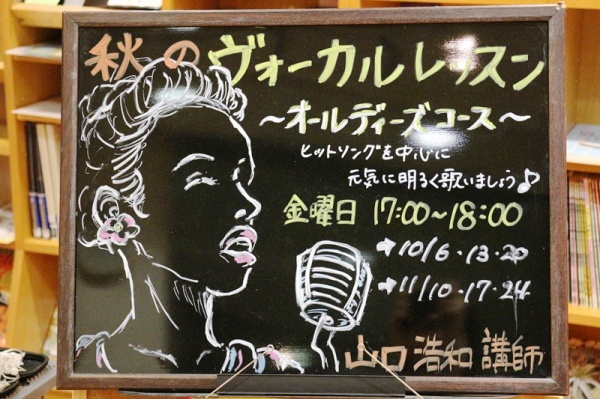 秋のヴォーカルレッスン
～オールディーズコース～
ヒットソングを中心に
元気に明るく歌いましょう♪
金曜日 17:00～18:00
→10/6・13・20
→11/10・17・24
山口浩和講師